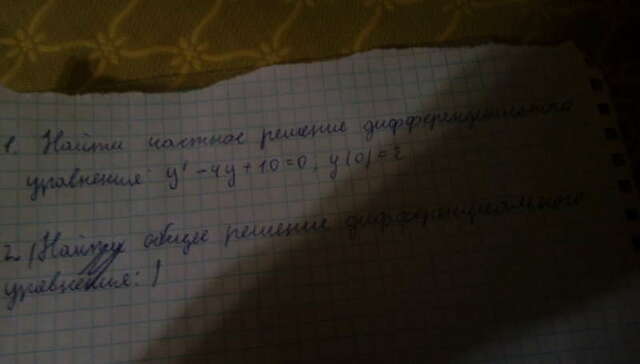 1. Найти частное решение дифференциального
уравнения: y' - 4y + 10 = 0, y(0) = 2
2. (Найти общее решение дифференциального
уравнения: )